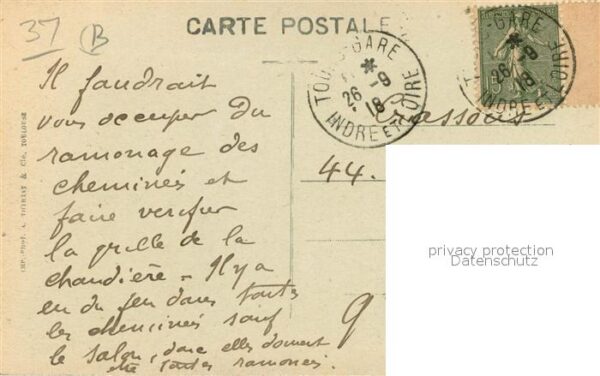 37 B
CARTE POSTALE
TOURS-GARE
26-9
18
INDRE ET LOIRE
-GARE
26-9
18
INDRE ET LOIRE
15
Il faudrait
vous occuper du
ramonage des
cheminées et
faire verifier
la grille de la
chaudière - Il y a
eu du feu dans toutes
les cheminées sauf
le salon, donc elles doivent
être toutes ramonées.
44.
9
privacy protection
Datenschutz
IMP. PHOT. A. THIRIAT & Cie, TOULOUSE